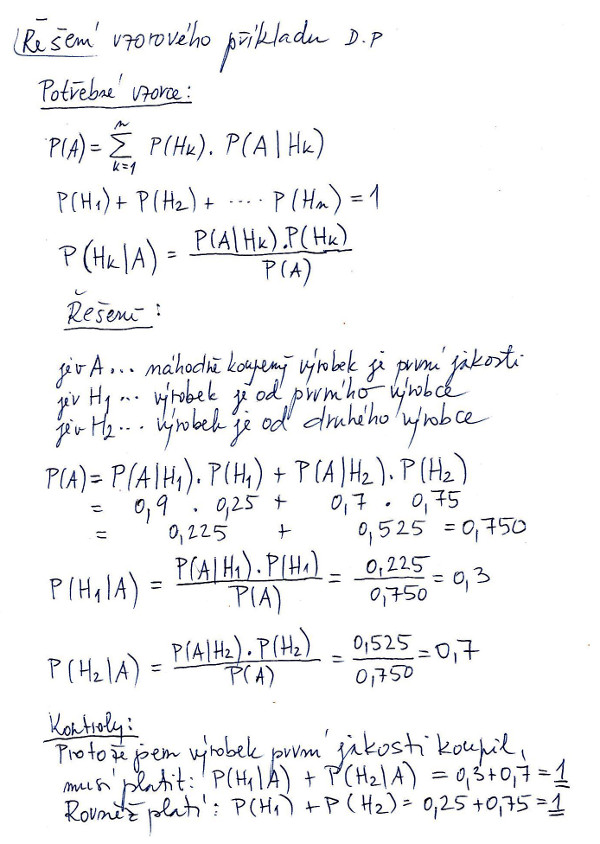 Řešení vzorového příkladu D.P
Potřebné vzorce:
P(A) = ∑ₖ₌₁ⁿ P(Hₖ). P(A|Hₖ)
P(H₁) + P(H₂) + ..... P(Hₙ) = 1
P(Hₖ|A) = P(A|Hₖ).P(Hₖ) / P(A)
Řešení:
jev A... náhodně koupený výrobek je první jakosti
jev H₁... výrobek je od prvního výrobce
jev H₂... výrobek je od druhého výrobce
P(A) = P(A|H₁).P(H₁) + P(A|H₂).P(H₂)
= 0,9 . 0,25 + 0,7 . 0,75
= 0,225 + 0,525 = 0,750
P(H₁|A) = P(A|H₁).P(H₁) / P(A) = 0,225 / 0,750 = 0,3
P(H₂|A) = P(A|H₂).P(H₂) / P(A) = 0,525 / 0,750 = 0,7
Kontroly:
Protože jsem výrobek první jakosti koupil,
musí platit: P(H₁|A) + P(H₂|A) = 0,3+0,7 = 1
Rovněž platí: P(H₁) + P(H₂) = 0,25+0,75 = 1